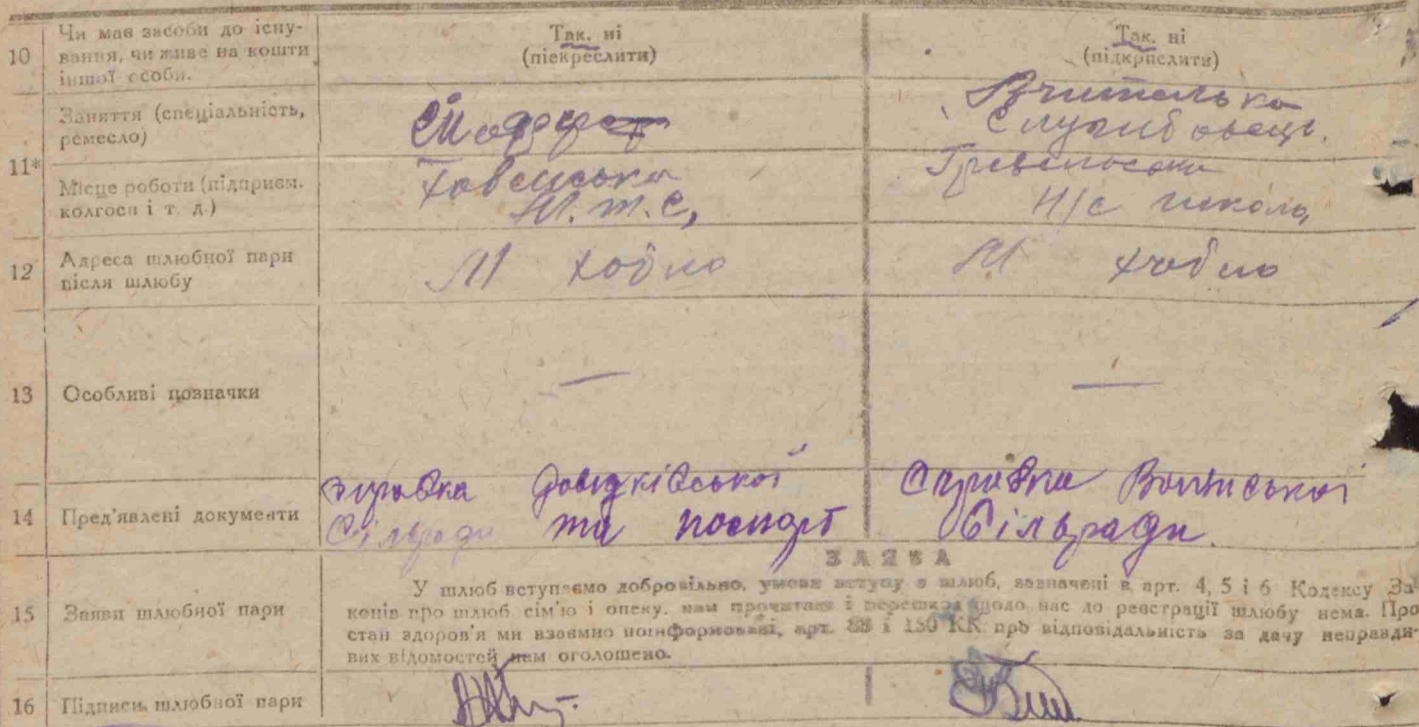 10 Чи має засоби до існу-
вання, чи живе на кошти
іншої особи.
Так, ні
(піекреслити)
Так, ні
(підкрпслити)
11*
Заняття (спеціальність,
ремесло)
Вчителька
Службовець.
Місце роботи (підприєм.
колгосп і т. д.)
М.т.С,
Н/с школа,
12 Адреса шлюбної пари
після шлюбу
М Хобно
М Хобно
13 Особливі позначки
—
—
14 Пред'явлені документи
справка
Сільради та паспорт
Справка
Сільради.
ЗАЯВА
15 Заяви шлюбної пари
У шлюб вступаємо добровільно, умови вступу в шлюб, зазначені в арт. 4, 5 і 6 Кодексу За-
конів про шлюб сім'ю і опеку, нам прочитані і перешкод щодо нас до реєстрації шлюбу нема. Про
стан здоров'я ми взаємно поінформовані, арт. 88 і 150 КК про відповідальність за дачу неправди-
вих відомостей нам оголошено.
16 Підписи шлюбної пари